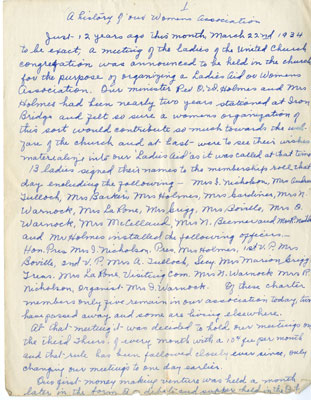 1
A history of our Womens Association
Just 12 years ago this month March 22nd 1934
to be exact, a meeting of the ladies of the United Church
congregation was announced to be held in the church
for the purpose of organizing a Ladies Aid or Womens
Association. Our minister Rev. Holmes and Mrs
Holmes had been nearly two years stationed at Iron
Bridge and felt so sure a womens organization of
this sort would contribute so much towards the wel-
fare of the church and at last were to see their wishes
materialize into our Ladies Aid as it was called at that time
13 ladies signed their names to the membership roll that
day including the following — Mrs J. Nicholson, Mrs
Tulloch, Mrs Barker, Mrs Holmes, Mrs Gardiner, Mrs N.
Warnock, Mrs La Rone, Mrs Grigg, Mrs Boville, Mrs O.
Warnock, Mrs McClelland, Mrs N. Beemer and
and Mr Holmes installed the following officers —
Hon. Pres Mrs J. Nicholson, Pres. Mrs Holmes, 1st V.P. Mrs
Boville, 2nd V.P. Mrs A. Tulloch, Secy Mrs Marion Grigg,
Treas. Mrs La Rone, Visiting Com. Mrs N. Warnock Mrs R.
Nicholson, Organist Mrs O. Warnock. Of these charter
members only five remain in our association today, two
have passed away and some are living elsewhere.
At that meeting it was decided to hold our meetings on
the third Thurs. of every month with a 10¢ fee per month
and that rule has been followed closely ever since, only
changing our meetings to one day earlier.
Our first money making venture was held a month
later in the form of a debate and supper held in the